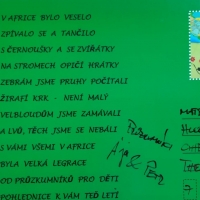 V AFRICE BYLO VESELO
ZPÍVALO SE A TANČILO
S ČERNOUŠKY A SE ZVÍŘÁTKY
NA STROMECH OPIČÍ HRÁTKY
ZEBRÁM JSME PRUHY POČÍTALI
ŽIRAFÍ KRK - NENÍ MALÝ
VELBLOUDŮM JSME ZAMÁVALI
A LVŮ, TĚCH JSME SE NEBÁLI
S VÁMI VŠEMI V AFRICE
BYLA VELKÁ LEGRACE
OD PRŮZKUMNÍKŮ PRO DĚTI
POHLEDNICE K VÁM TEĎ LETÍ